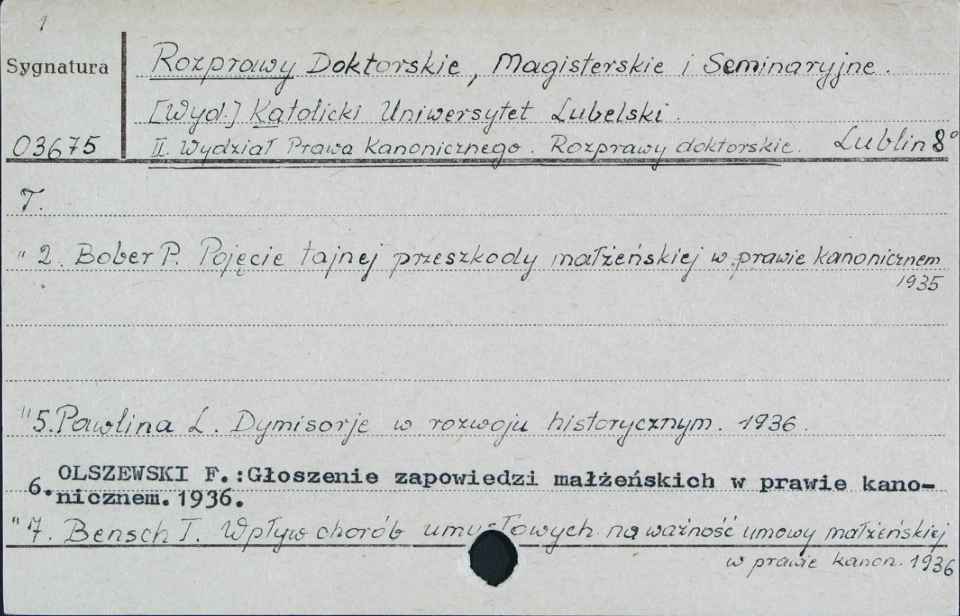 1
Sygnatura
Rozprawy Doktorskie, Magisterskie i Seminaryjne.
[Wyd.] Katolicki Uniwersytet Lubelski.
03675 II. Wydział Prawa Kanonicznego. Rozprawy doktorskie. Lublin 8°
T.
" 2. Bober P. Pojęcie tajnej przeszkody małżeńskiej w prawie kanonicznem
1935
" 5. Pawlina L. Dymisorje w rozwoju historycznym. 1936.
6. OLSZEWSKI F.:Głoszenie zapowiedzi małżeńskich w prawie kano-
nicznem.1936.
" 7. Bensch T. Wpływ chorób umysłowych na ważność umowy małżeńskiej
w prawie kanon. 1936